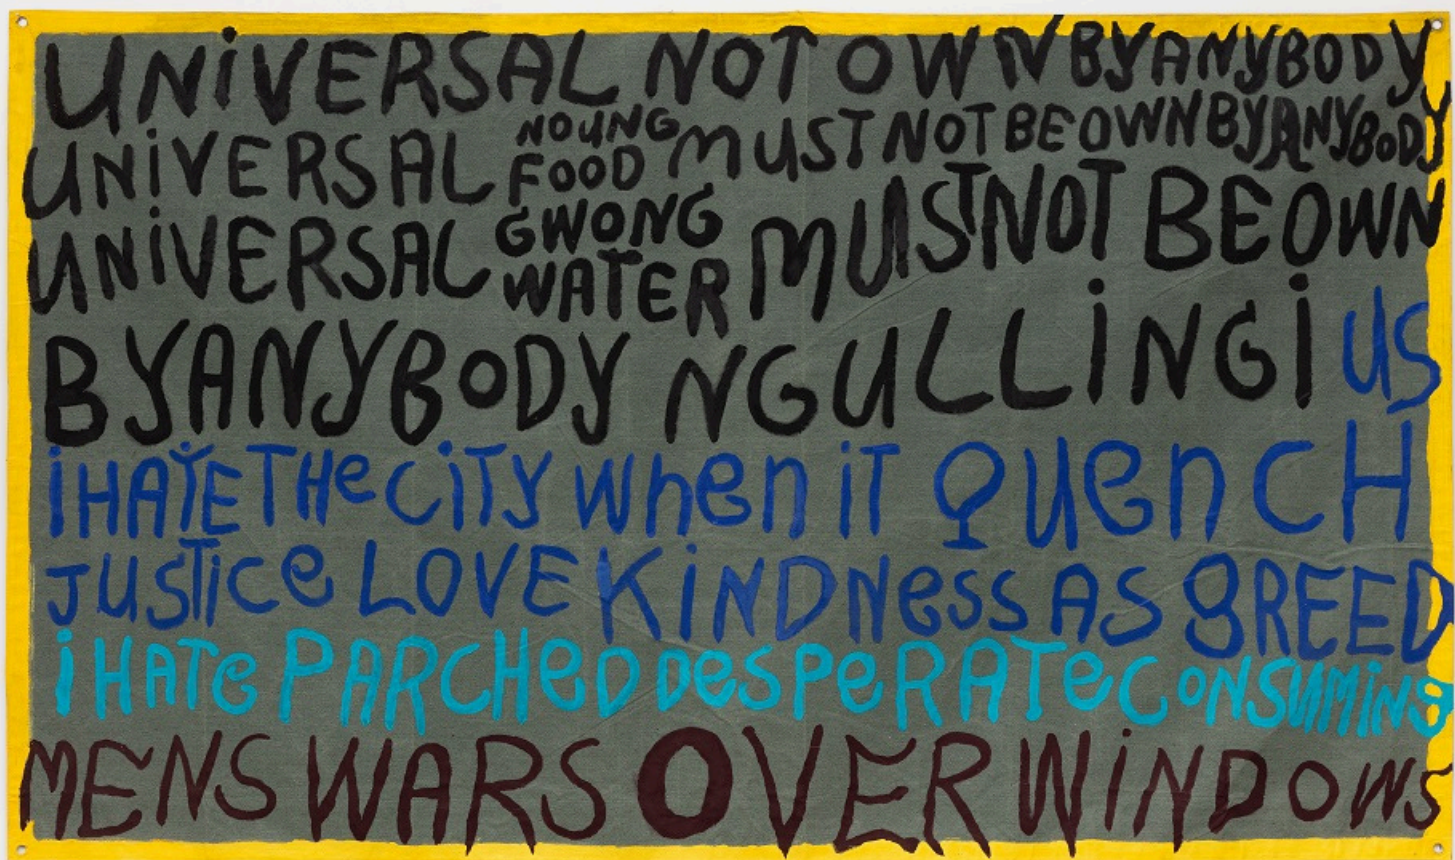 UNiVERSAL NOT OWN BYANYBODY
UNiVERSAL NOUNG FOOD MUST NOT BE OWN BY ANYBODY
UNiVERSAL GWONG WATER MUST NOT BE OWN
BYANYBODY NGULLiNGi US
i HATE THe CiTY when iT QUenCH
JUSTice LOVE KiNDNess AS gREED
i HATe PARCHeD DesPeRATe CoNSUMiNg
MENS WARS OVER WiNDOWS